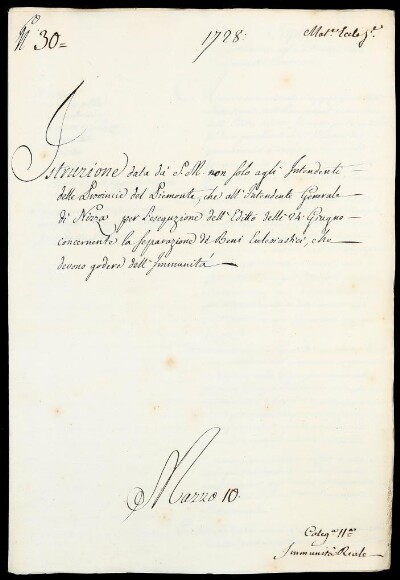 N.º 30=
1728.
Mat.ª Eccles.ª
Istruzione data da S. M. non solo agli Intendenti
delle Provincie del Piemonte, che all'Intendente Generale
di Nizza per l'esecuzione dell'Editto delli 24 Giugno
concernente la separazione de Beni Eclesiastici, che
devono godere dell'Immunità
Marzo 10.
Categ.ª 11.ª
Immunità Reale